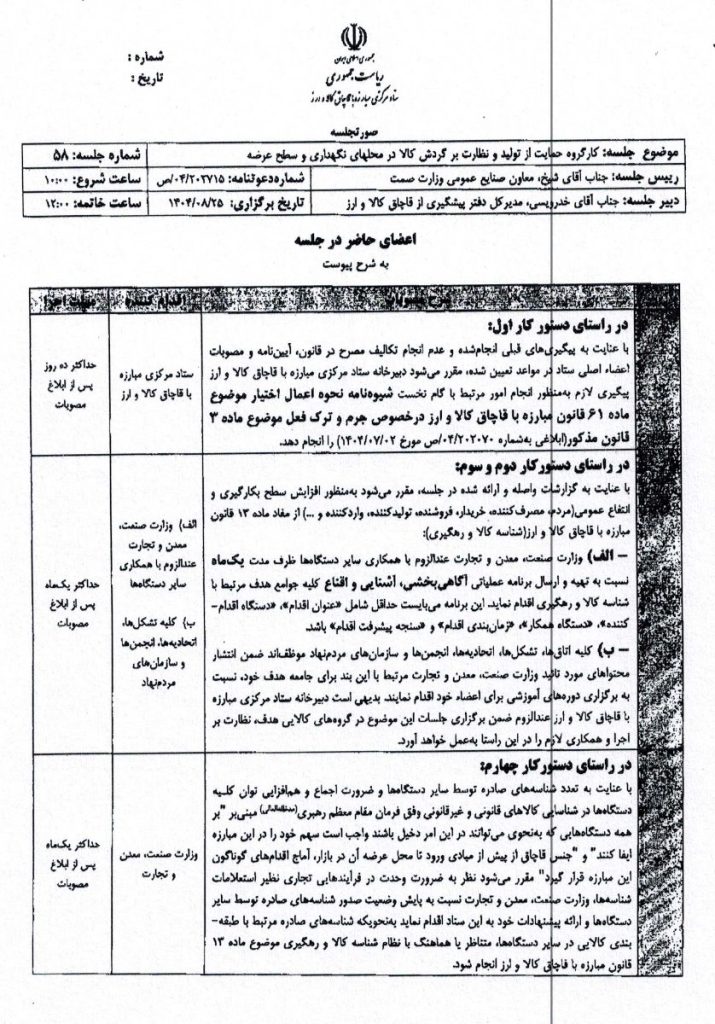 جمهوری اسلامی ایران
ریاست جمهوری
ستاد مرکزی مبارزه با قاچاق کالا و ارز
شماره :
تاریخ :
صورتجلسه
موضوع جلسه: کارگروه حمایت از تولید و نظارت بر گردش کالا در محلهای نگهداری و سطح عرضه
شماره جلسه: ۵۸
رییس جلسه: جناب آقای شیخ، معاون صنایع عمومی وزارت صمت
شماره‌دعوتنامه: ۰۴/۲۰۲۷۱۵/ص
ساعت شروع: ۱۰:۰۰
دبیر جلسه: جناب آقای خدرویسی، مدیرکل دفتر پیشگیری از قاچاق کالا و ارز
تاریخ برگزاری: ۱۴۰۴/۰۸/۲۵
ساعت خاتمه: ۱۲:۰۰
اعضای حاضر در جلسه
به شرح پیوست
شرح مصوبات
اقدام کننده
مهلت اجرا
در راستای دستور کار اول:
با عنایت به پیگیری‌های قبلی انجام‌شده و عدم انجام تکالیف مصرح در قانون، آیین‌نامه و مصوبات
اعضاء اصلی ستاد در مواعد تعیین شده، مقرر می‌شود دبیرخانه ستاد مرکزی مبارزه با قاچاق کالا و ارز
پیگیری لازم به‌منظور انجام امور مرتبط با گام نخست شیوه‌نامه نحوه اعمال اختیار موضوع
ماده ۶۱ قانون مبارزه با قاچاق کالا و ارز درخصوص جرم و ترک فعل موضوع ماده ۳
قانون مذکور(ابلاغی به‌شماره ۰۴/۲۰۲۰۷۰/ص مورخ ۱۴۰۴/۰۷/۰۲) را انجام دهد.
ستاد مرکزی مبارزه
با قاچاق کالا و ارز
حداکثر ده روز
پس از ابلاغ
مصوبات
در راستای دستورکار دوم و سوم:
با عنایت به گزارشات واصله و ارائه شده در جلسه، مقرر می‌شود به‌منظور افزایش سطح بکارگیری و
انتفاع عمومی(مردم، مصرف‌کننده، خریدار، فروشنده، تولیدکننده، واردکننده و ...) از مفاد ماده ۱۳ قانون
مبارزه با قاچاق کالا و ارز(شناسه کالا و رهگیری):
– الف) وزارت صنعت، معدن و تجارت عندالزوم با همکاری سایر دستگاه‌ها ظرف مدت یک‌ماه
نسبت به تهیه و ارسال برنامه عملیاتی آگاهی‌بخشی، آشنایی و اقناع کلیه جوامع هدف مرتبط با
شناسه کالا و رهگیری اقدام نماید. این برنامه می‌بایست حداقل شامل «عنوان اقدام»، «دستگاه اقدام-
کننده»، «دستگاه همکار»، «زمان‌بندی اقدام» و «سنجه پیشرفت اقدام» باشد.
– ب) کلیه اتاق‌ها، تشکل‌ها، اتحادیه‌ها، انجمن‌ها و سازمان‌های مردم‌نهاد موظف‌اند ضمن انتشار
محتواهای مورد تائید وزارت صنعت، معدن و تجارت مرتبط با این بند برای جامعه هدف خود، نسبت
به برگزاری دوره‌های آموزشی برای اعضاء خود اقدام نمایند. بدیهی است دبیرخانه ستاد مرکزی مبارزه
با قاچاق کالا و ارز عندالزوم ضمن برگزاری جلسات این موضوع در گروه‌های کالایی هدف، نظارت بر
اجرا و همکاری لازم را در این راستا به‌عمل خواهد آورد.
الف) وزارت صنعت،
معدن و تجارت
عندالزوم با همکاری
سایر دستگاه‌ها
ب) کلیه تشکل‌ها،
اتحادیه‌ها، انجمن‌ها
و سازمان‌های
مردم‌نهاد
حداکثر یک‌ماه
پس از ابلاغ
مصوبات
در راستای دستورکار چهارم:
با عنایت به تعدد شناسه‌های صادره توسط سایر دستگاه‌ها و ضرورت اجماع و هم‌افزایی توان کلیه
دستگاه‌ها در شناسایی کالاهای قانونی و غیرقانونی وفق فرمان مقام معظم رهبری(مدظله‌العالی) مبنی‌بر "بر
همه دستگاه‌هایی که به‌نحوی می‌توانند در این امر دخیل باشند واجب است سهم خود را در این مبارزه
ایفا کنند" و "جنس قاچاق از پیش از مبادی ورود تا محل عرضه آن در بازار، آماج اقدام‌های گوناگون
این مبارزه قرار گیرد" مقرر می‌شود نظر به ضرورت وحدت در فرآیندهایی تجاری نظیر استعلامات
شناسه‌ها، وزارت صنعت، معدن و تجارت نسبت به پایش وضعیت صدور شناسه‌های صادره توسط سایر
دستگاه‌ها و ارائه پیشنهادات خود به این ستاد اقدام نماید به‌نحویکه شناسه‌های صادره مرتبط با طبقه-
بندی کالایی در سایر دستگاه‌ها، متناظر یا هماهنگ با نظام شناسه کالا و رهگیری موضوع ماده ۱۳
قانون مبارزه با قاچاق کالا و ارز انجام شود.
وزارت صنعت، معدن
و تجارت
حداکثر یک‌ماه
پس از ابلاغ
مصوبات